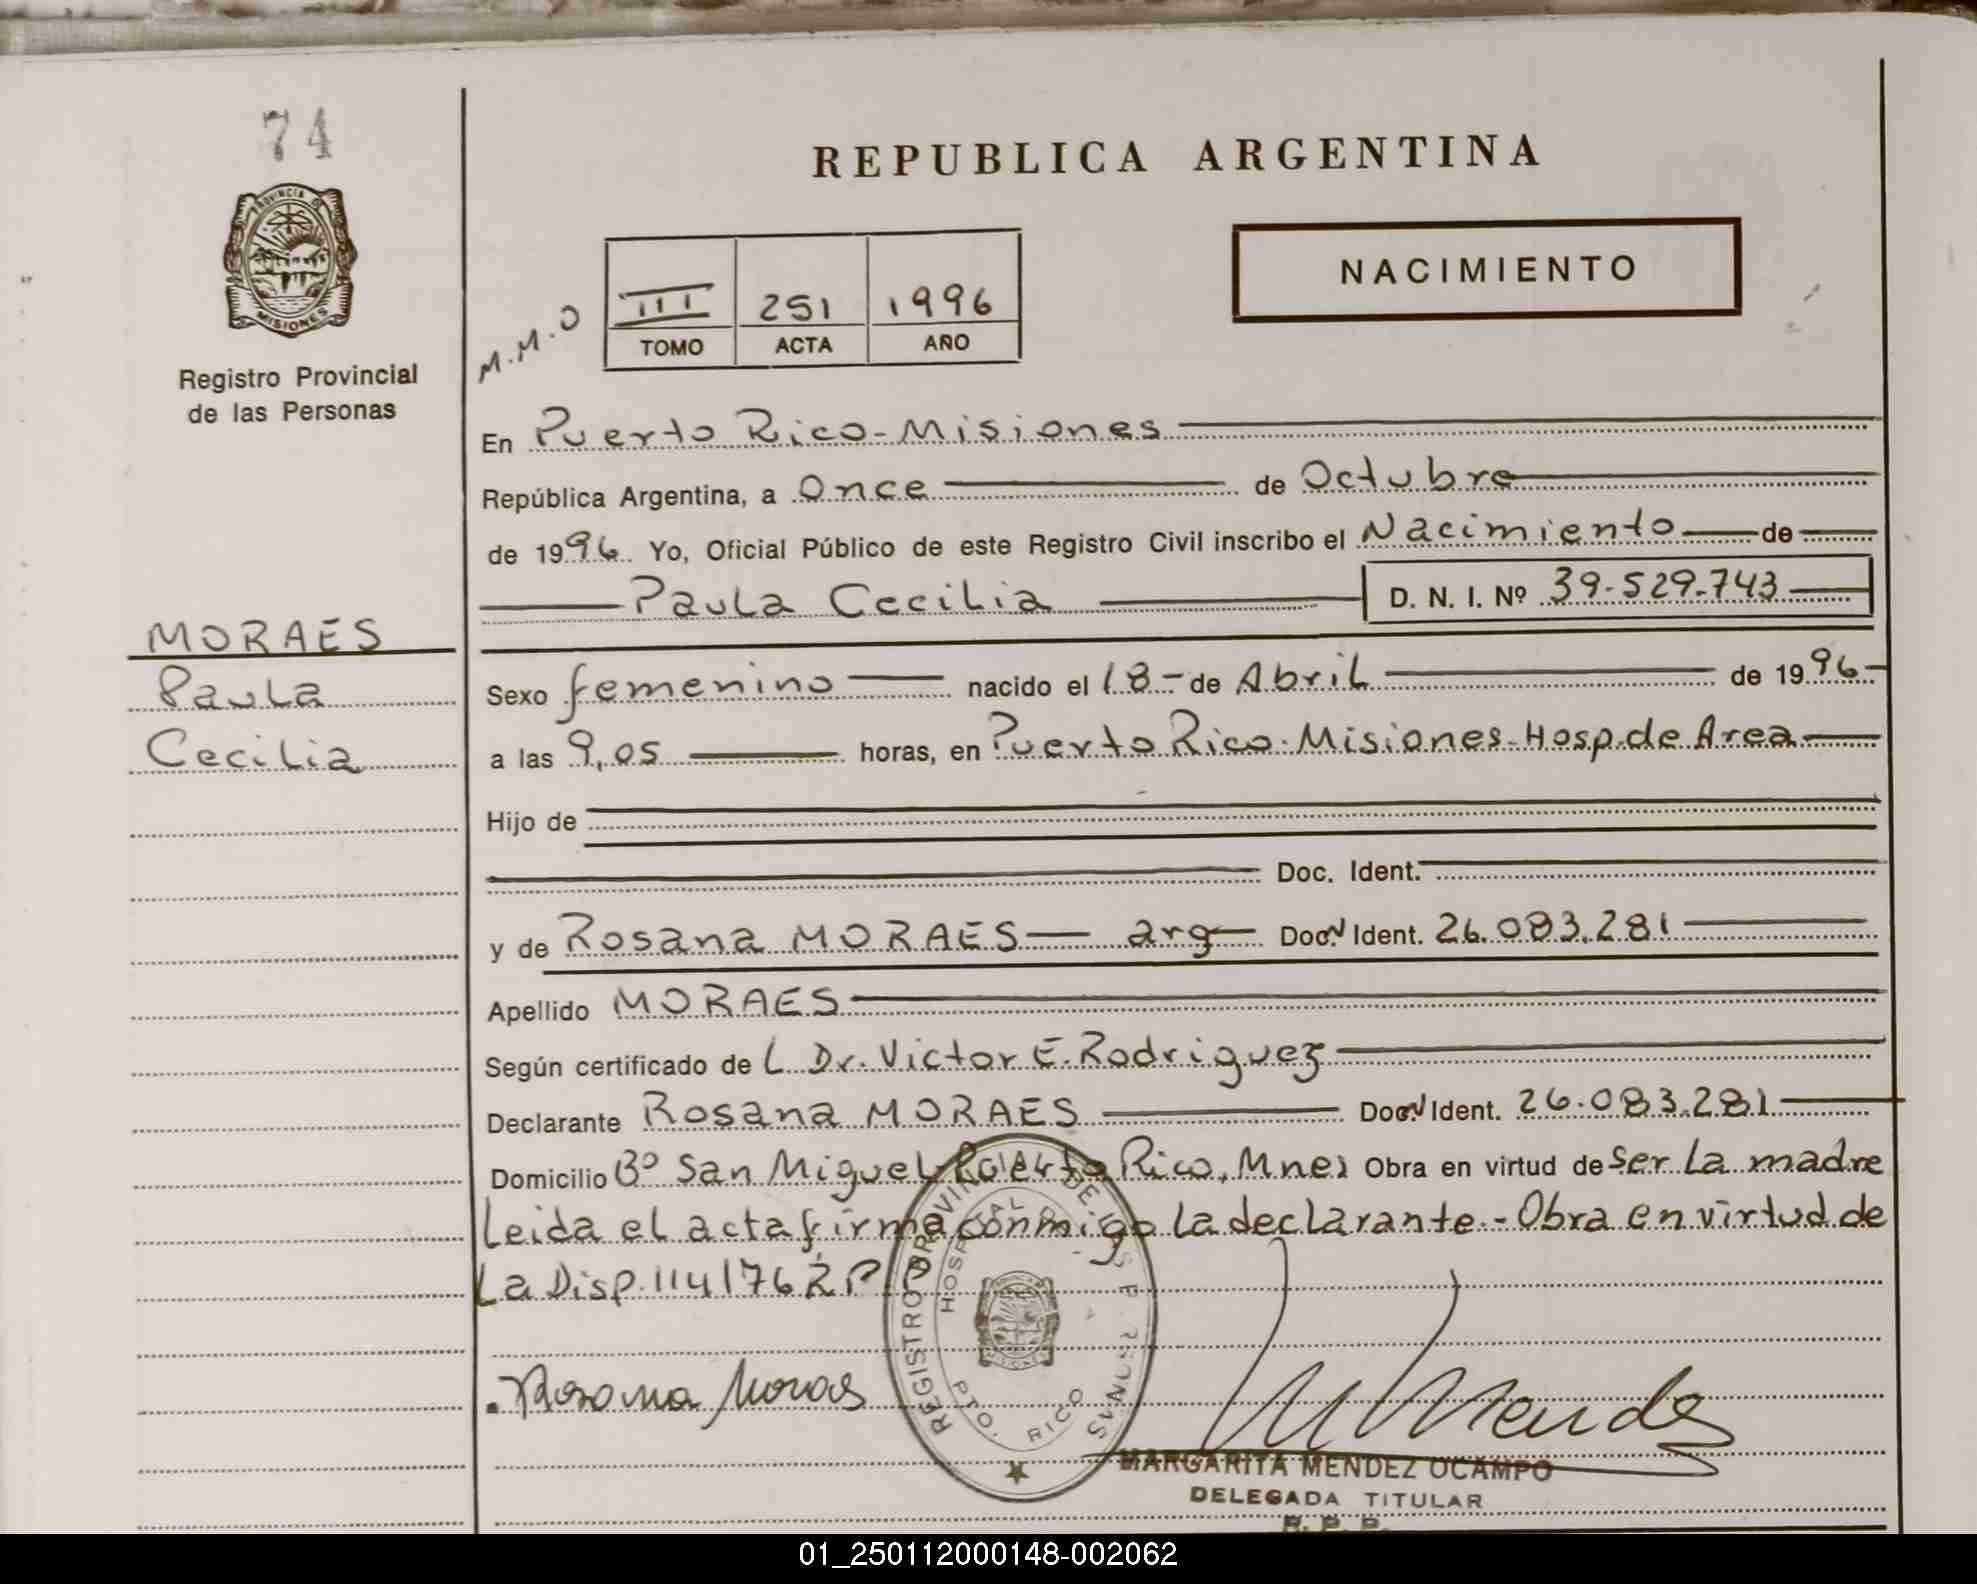 74
REPUBLICA ARGENTINA
PROVINCIA DE
MISIONES
Registro Provincial
de las Personas
M.M.O
III 251 1996
TOMO ACTA AÑO
NACIMIENTO
En Puerto Rico-Misiones
República Argentina, a Once de Octubre
de 1996 Yo, Oficial Público de este Registro Civil inscribo el Nacimiento de
Paula Cecilia D. N. I. Nº 39.529.743
MORAES
Paula
Cecilia
Sexo femenino nacido el 18 - de Abril de 1996
a las 9,05 horas, en Puerto Rico. Misiones-Hosp.de Area
Hijo de
Doc. Ident.
y de Rosana MORAES arg Doc. Ident. 26.083.281
Apellido MORAES
Según certificado de L Dr. Victor E. Rodriguez
Declarante Rosana MORAES Doc. Ident. 26.083.281
Domicilio Bº San Miguel-Puerto Rico, Mnes Obra en virtud de ser La madre
Leida el acta firma conmigo la declarante.- Obra en virtud de
La Disp.114/76 R.P.P.
REGISTRO PROVINCIAL DE LAS PERSONAS
HOSPITAL
PTO. RICO
Rosana Moraes
M Mendez
MARGARITA MENDEZ OCAMPO
DELEGADA TITULAR
R. P. P.
01_250112000148-002062